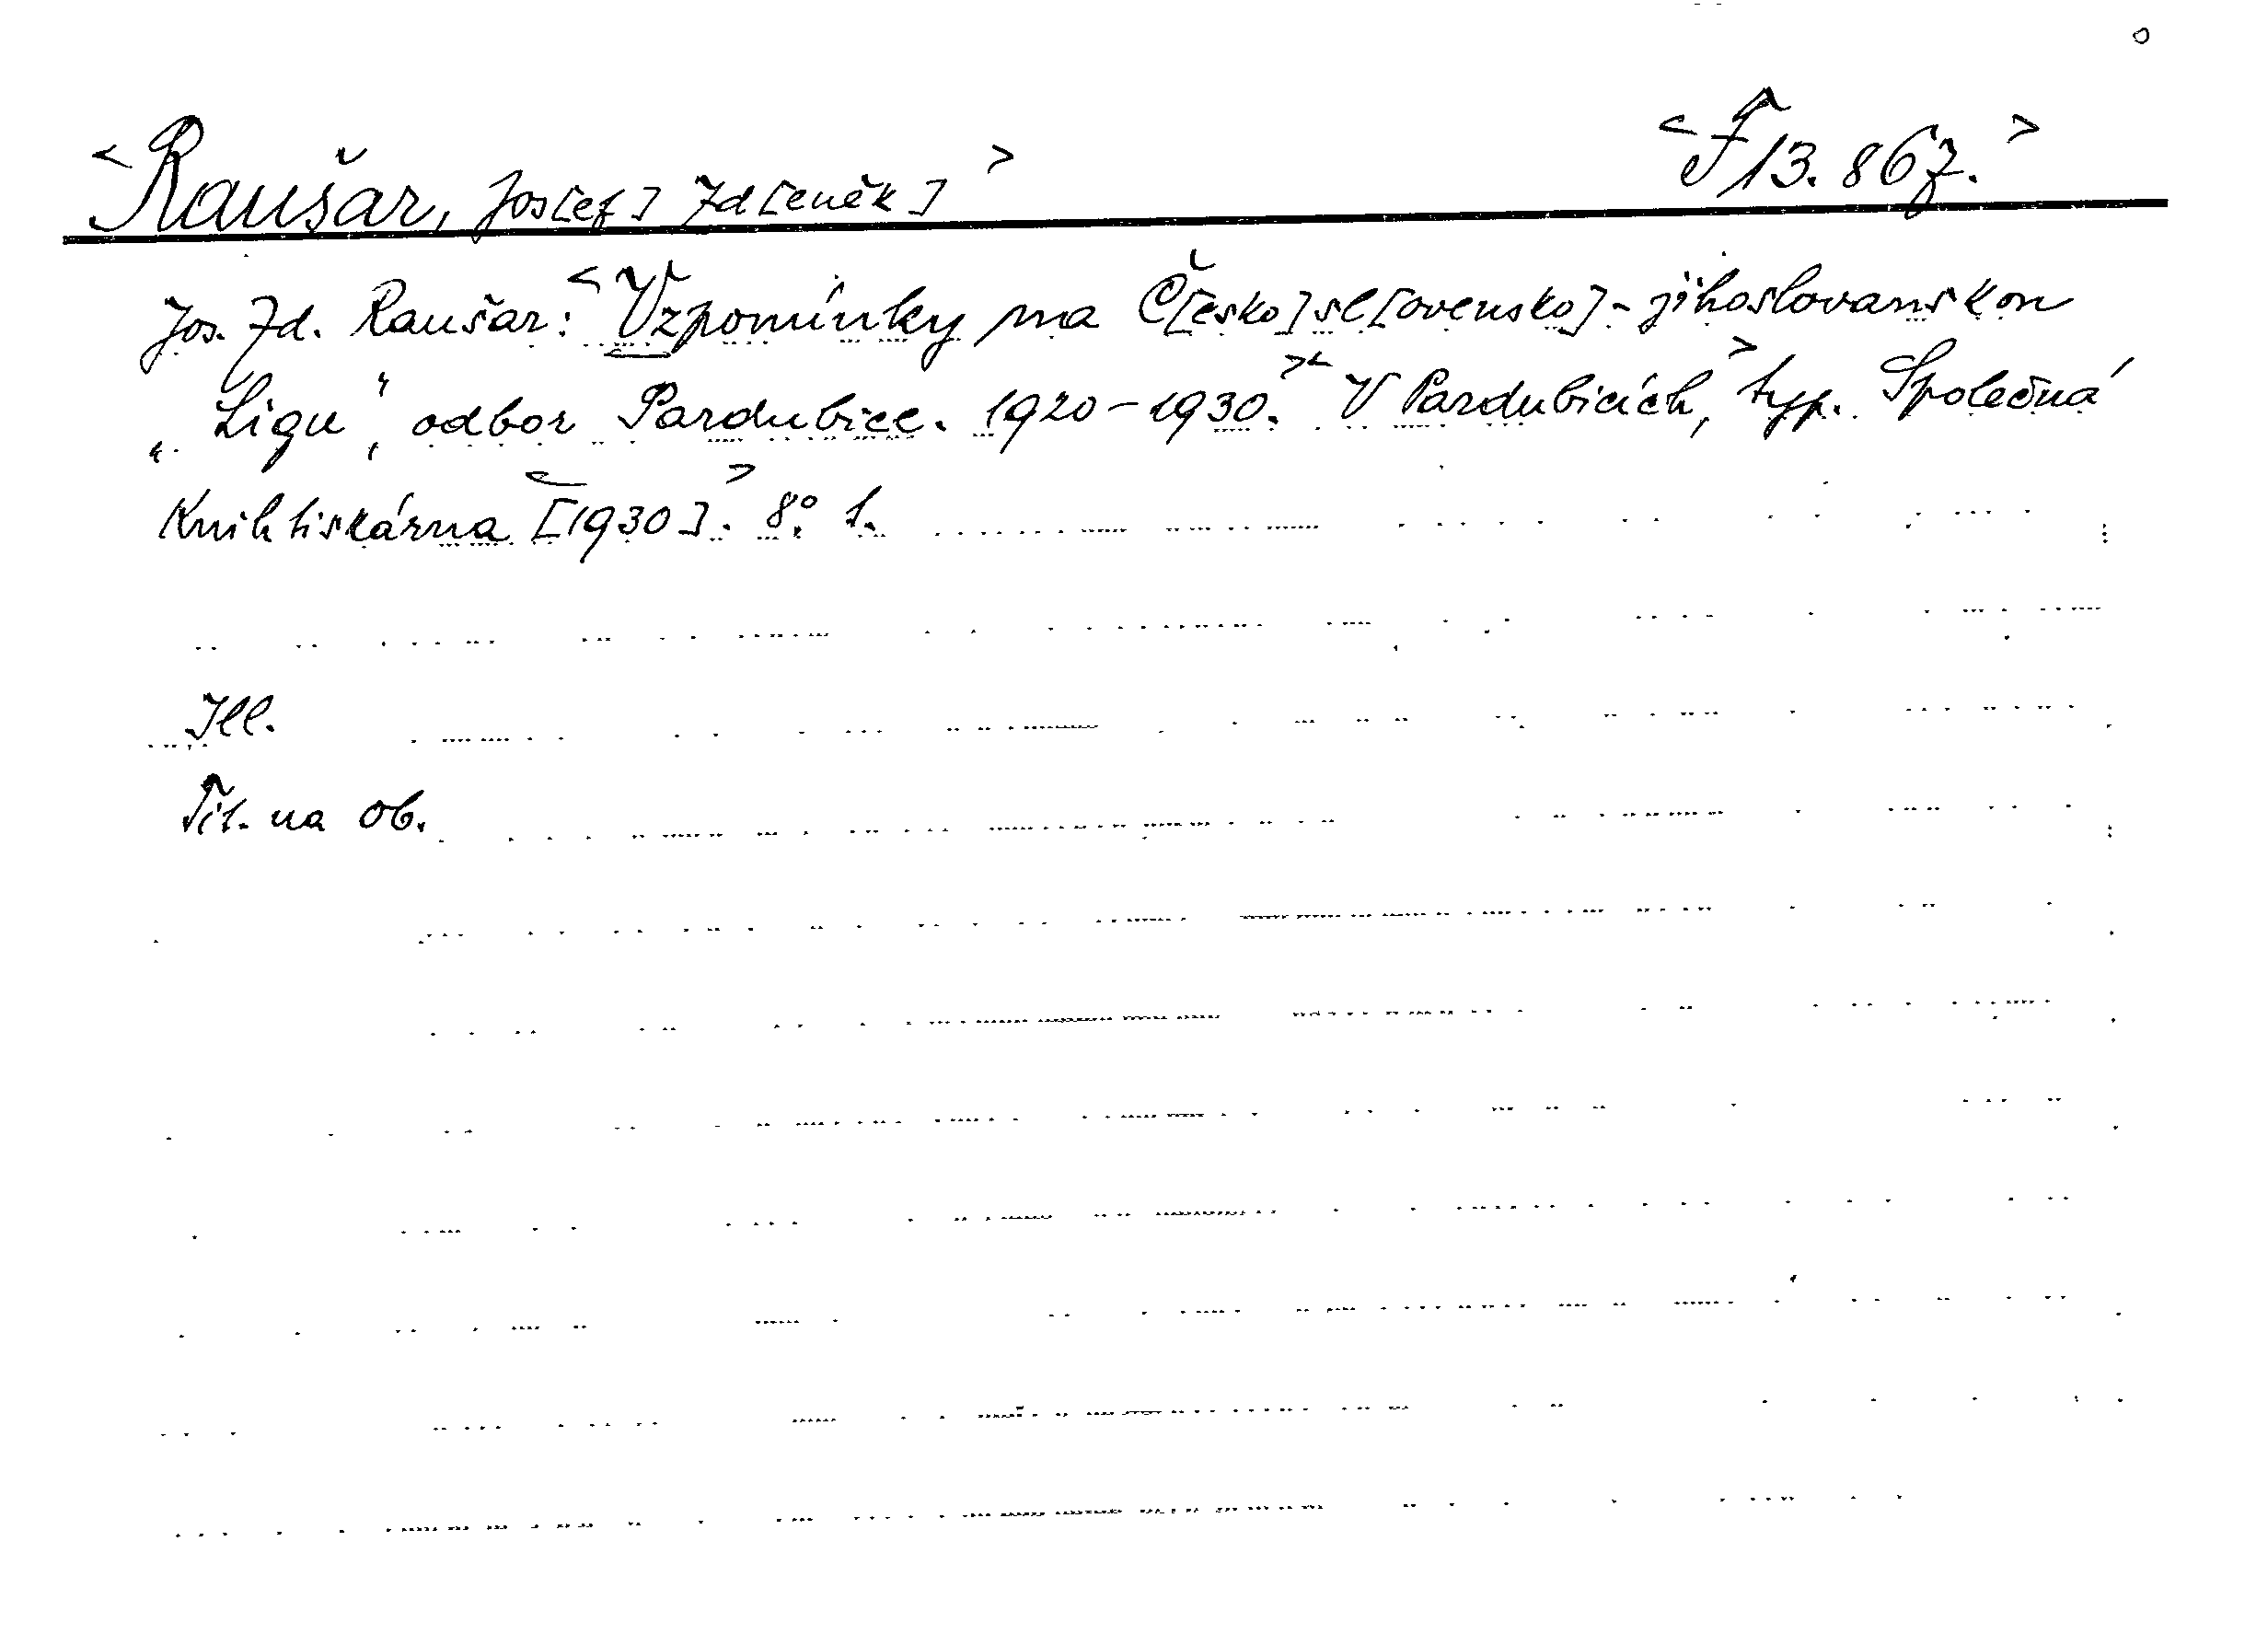 <Raušar, Jos[ef] Zd[eněk]> <F 13.867.>
Jos. Zd. Raušar: <Vzpomínky na Č[esko]sl[ovensko]-jihoslovanskou
„Ligu“, odbor Pardubice. 1920-1930.>< V Pardubicích,> typ. Společná
Knihtiskárna <[1930].> 8° 1.
Ill.
Tit. na ob.